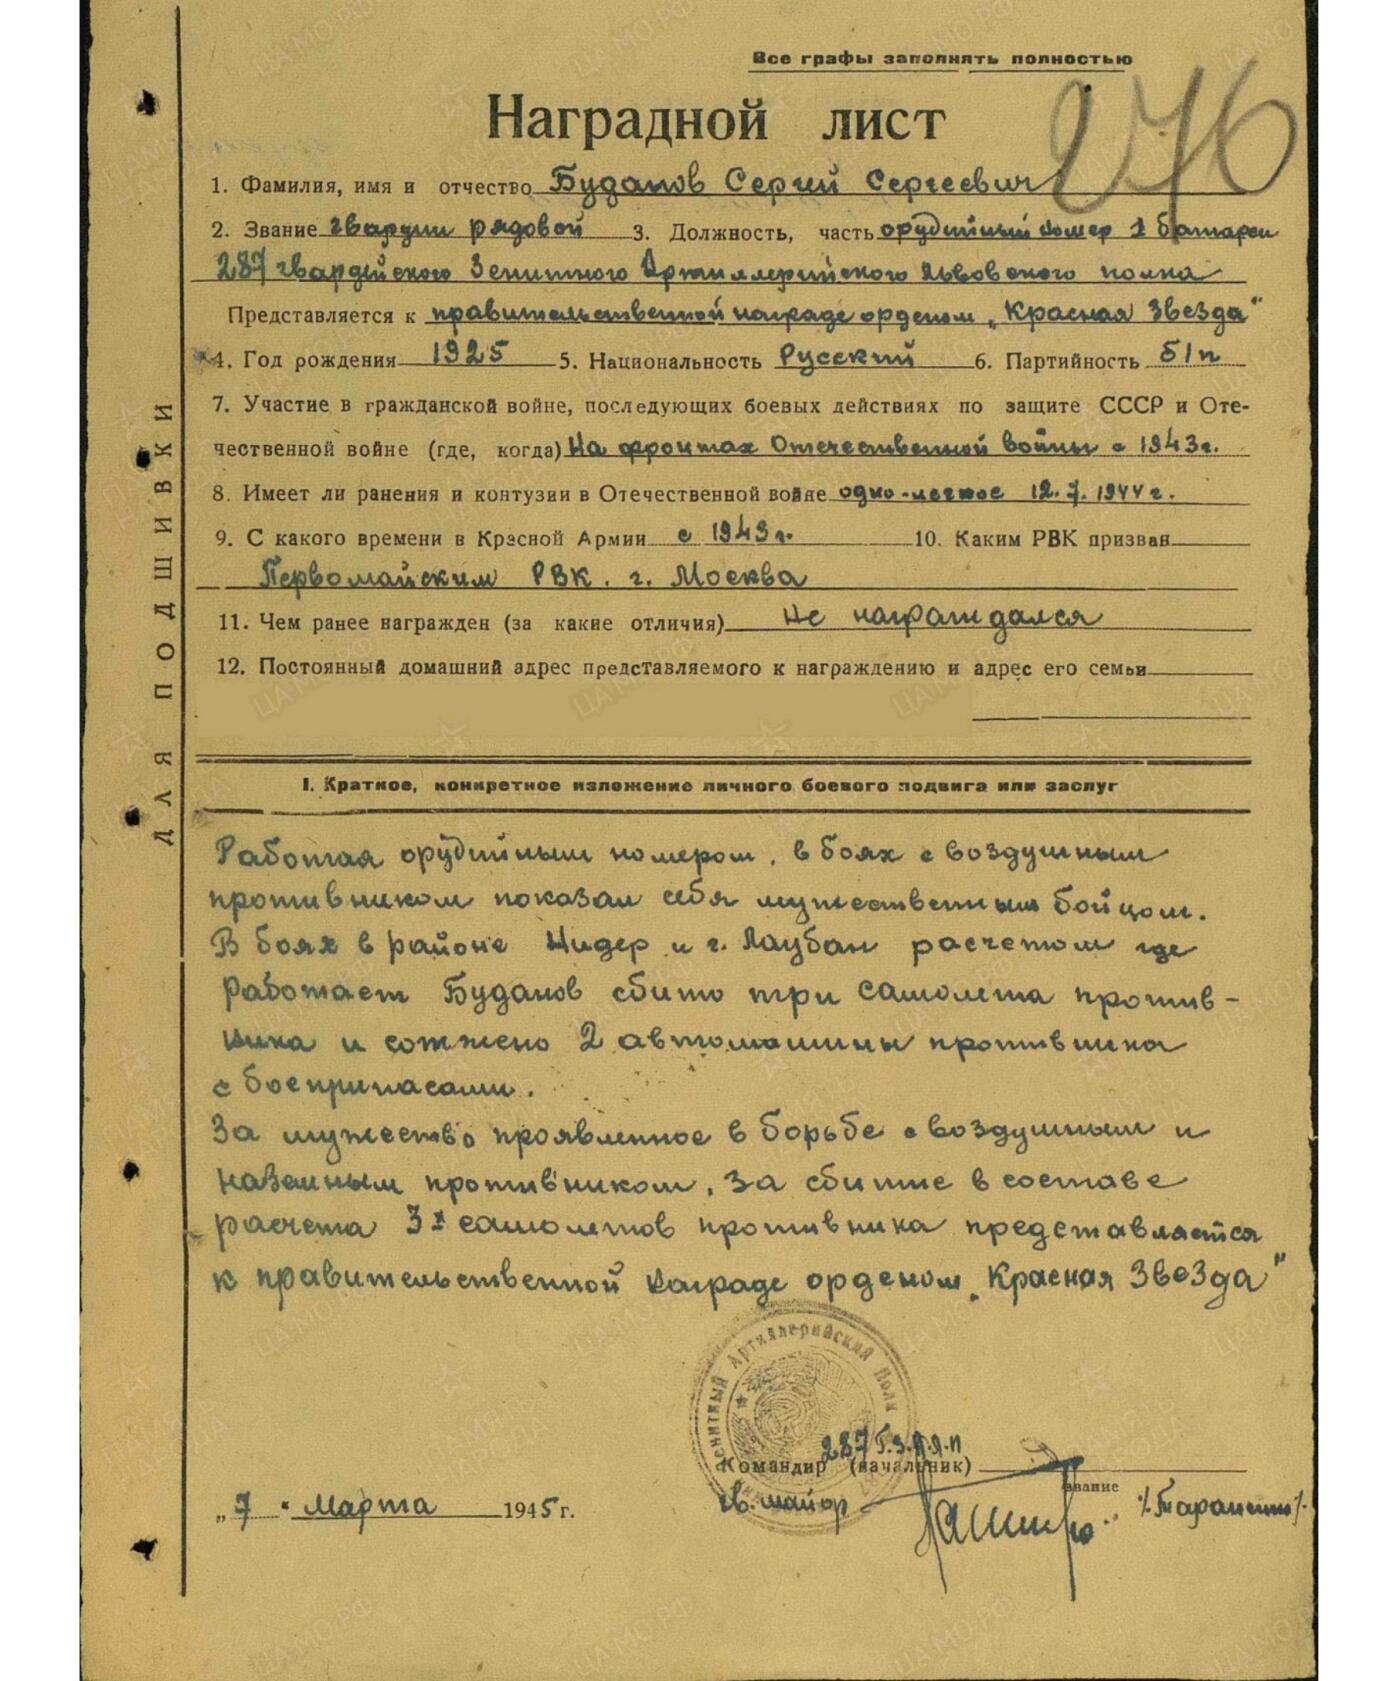 Все графы заполнять полностью
276
Наградной лист
1. Фамилия, имя и отчество Буданов Сергей Сергеевич
2. Звание гвардии рядовой 3. Должность, часть орудийный номер 1 батареи
287 гвардейского Зенитного Артиллерийского Львовского полка
Представляется к правительственной награде орденом „Красная Звезда"
4. Год рождения 1925 5. Национальность Русский 6. Партийность б/п
7. Участие в гражданской войне, последующих боевых действиях по защите СССР и Оте-
чественной войне (где, когда) На фронтах Отечественной войны с 1943г.
8. Имеет ли ранения и контузии в Отечественной войне одно-легкое 12.7.1944г.
9. С какого времени в Красной Армии с 1943г. 10. Каким РВК призван
Первомайским РВК. г. Москва
11. Чем ранее награжден (за какие отличия) Не награждался
12. Постоянный домашний адрес представляемого к награждению и адрес его семьи
ДЛЯ ПОДШИВКИ
I. Краткое, конкретное изложение личного боевого подвига или заслуг
Работая орудийным номером, в боях с воздушным
противником показал себя мужественным бойцом.
В боях в районе Нидер и г. Лаубан расчетом где
работает Буданов сбито три самолета против-
ника и сожжено 2 автомашины противника
с боеприпасами.
За мужество проявленное в борьбе с воздушным и
наземным противником, за сбитие в составе
расчета 3х самолетов противника представляется
к правительственной награде орденом „Красная Звезда"
Зенитный Артиллерийский Полк
287 Г.З.А.П
Командир (начальник)
звание
гв. майор /Тараненко/.
„7" Марта 1945г.